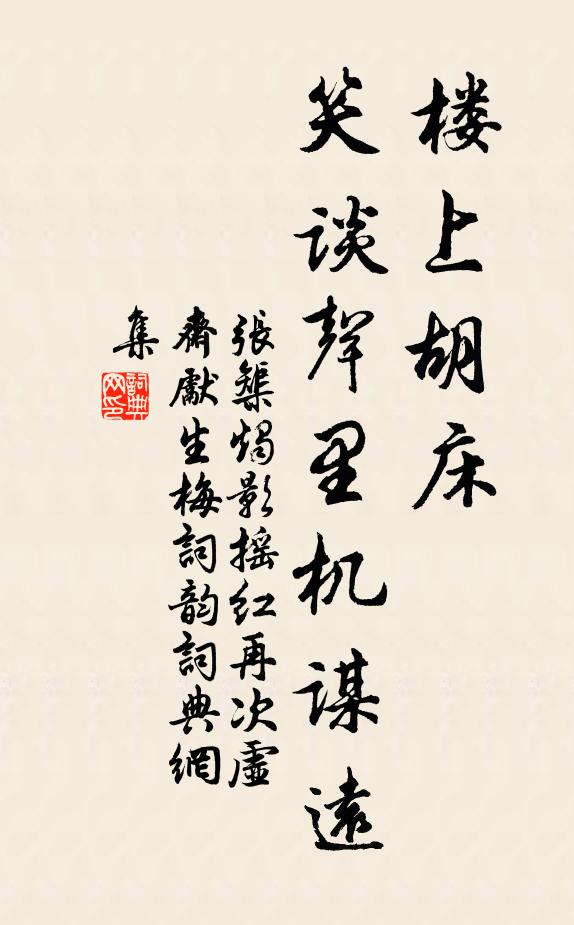 楼上胡床
笑谈聲里机谋遠
張榘燭影摇红再次虛
齋獻生梅詞韵詞典網
集
詞典网印